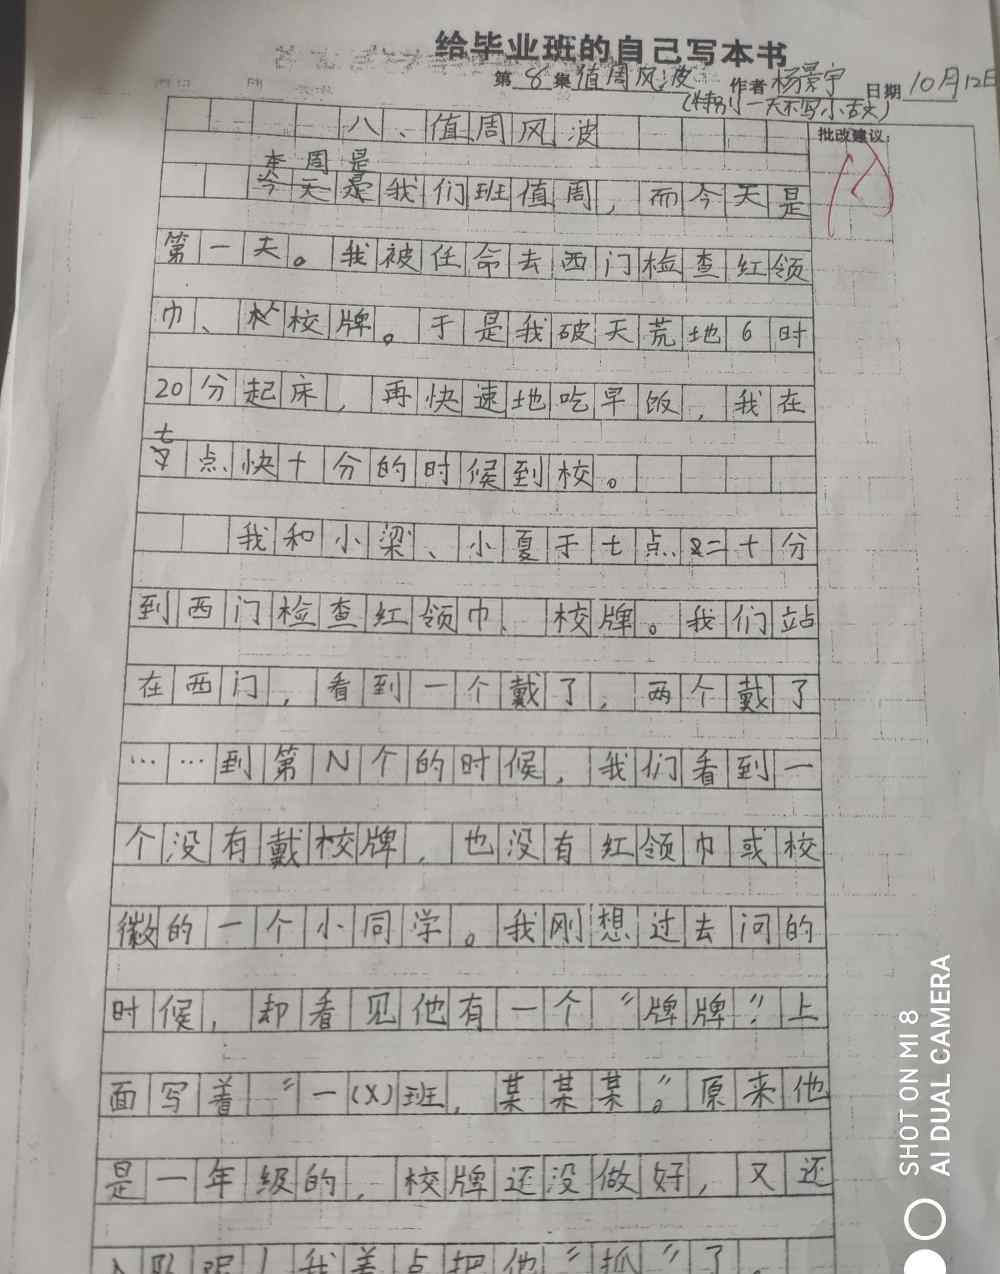 给毕业班的自己写本书
第 8 集 值周风波 作者 杨景宇 日期 10月12日
(特别一天不写小古文)
批改建议:
八、值周风波
本周是
我们班值周,而今天是
第一天。我被任命去西门检查红领
巾、校牌。于是我破天荒地6时
20分起床,再快速地吃早饭,我在
七
点快十分的时候到校。
我和小梁、小夏于七点二十分
到西门检查红领巾、校牌。我们站
在西门,看到一个戴了,两个戴了
……到第N个的时候,我们看到一
个没有戴校牌,也没有红领巾或校
徽的一个小同学。我刚想过去问的
时候,却看见他有一个“牌牌”上
面写着“一(X)班,某某某”。原来他
是一年级的,校牌还没做好,又还
入队呢!我差点把他“抓”了。
SHOT ON MI 8
AI DUAL CAMERA